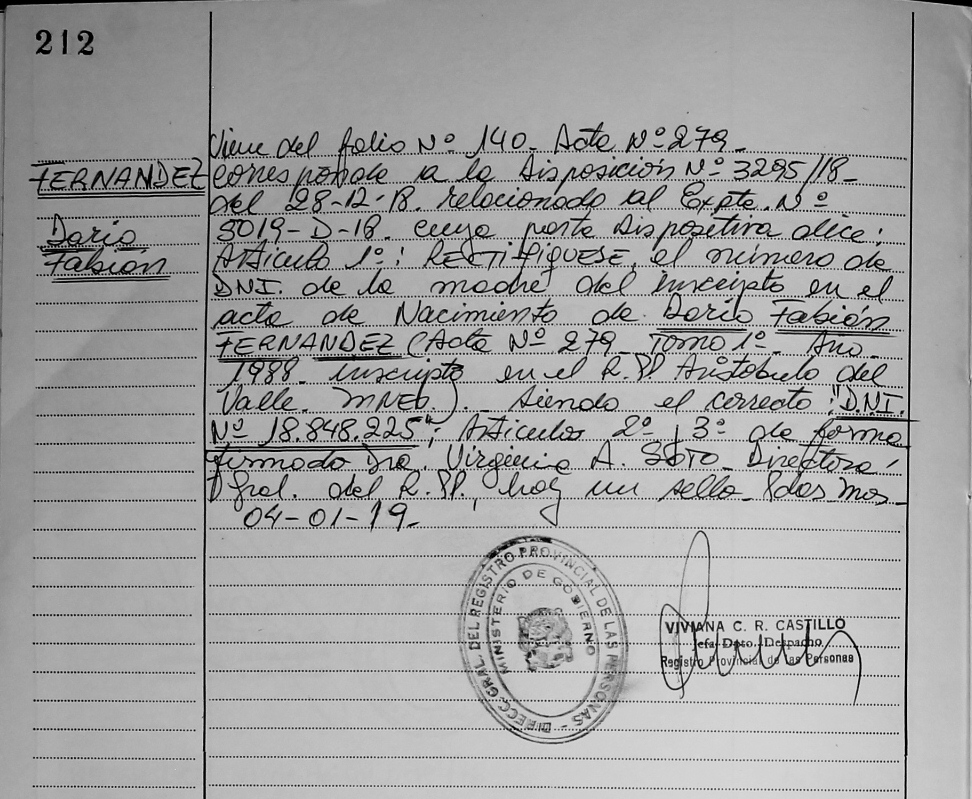 212
Viene del folio Nº 140- Acta Nº 279-
FERNANDEZ
corresponde a la Disposición Nº 3295/18-
del 28-12-18. relacionado al Expte. Nº
Dario
Fabián
3019-D-18. cuya parte dispositiva dice:
Articulo 1º: RECTIFIQUESE, el número de
DNI. de la madre del inscripto en el
acta de Nacimiento de Dario Fabián
FERNANDEZ (Acta Nº 279 Tomo 1º- Año-
1988- inscripto en el R.PP Aristobulo del
Valle. MNES.). Siendo el correcto: "D.N.I.
Nº 18.848.225"; Articulos 2º, 3º de forma
firmado Dra. Virginia A. SOTO- Directora
Gral. del R.PP., hay un sello- Pdas Mnes-
04-01-19-
DIRECC. GRAL. DEL REGISTRO PROVINCIAL DE LAS PERSONAS -
MINISTERIO DE GOBIERNO
VIVIANA C. R. CASTILLO
Jefa Dpto. Despacho
Registro Provincial de las Personas